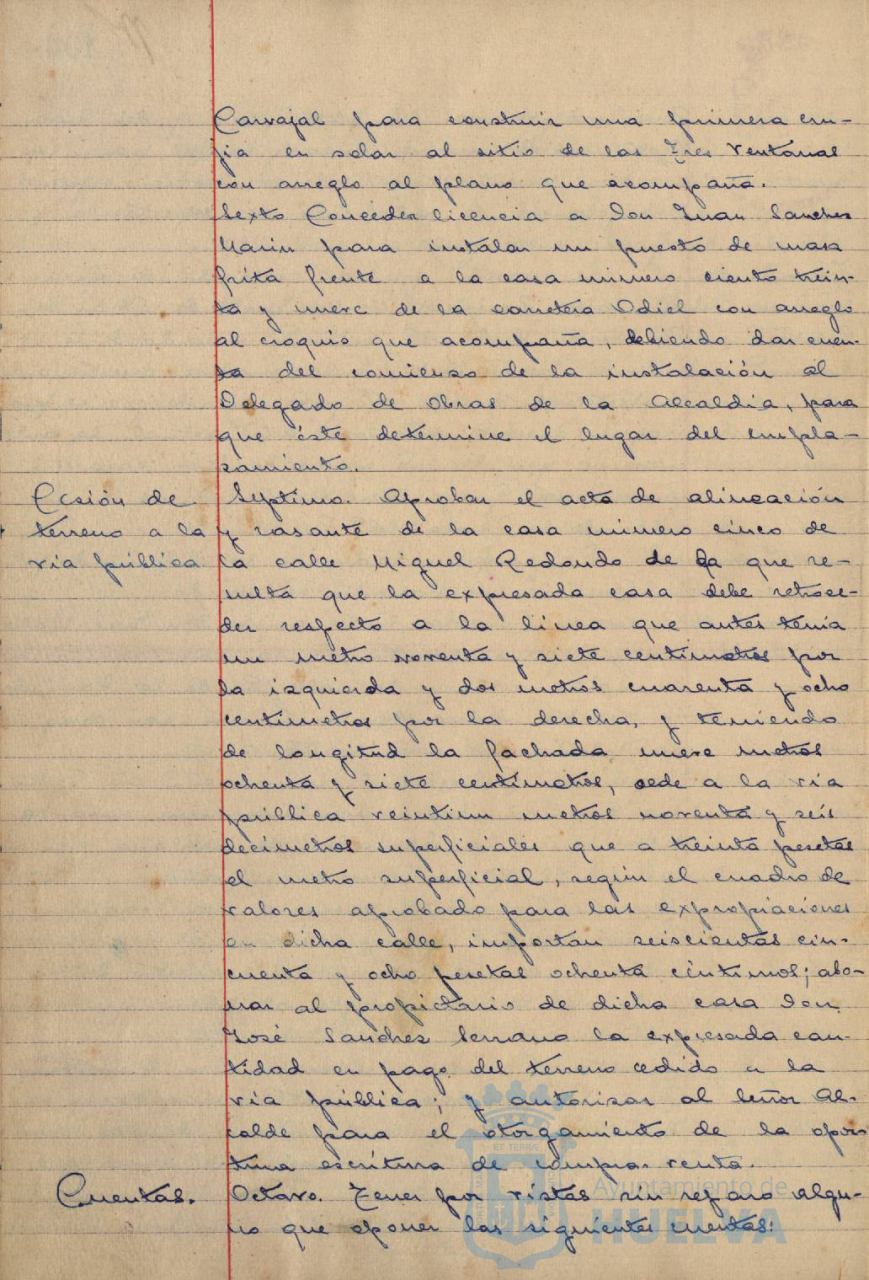 Carvajal para construir una primera cru-
jia en solar al sitio de las Tres Ventanas
con arreglo al plano que acompaña.
Sexto Conceder licencia a Don Juan Sanchez
Marin para instalar un puesto de masa
frita frente a la casa número ciento trein-
ta y nueve de la carretera Odiel con arreglo
al croquis que acompaña, debiendo dar cuen-
ta del comienzo de la instalación al
Delegado de Obras de la Alcaldía, para
que éste determine el lugar del empla-
zamiento.
Cesión de
terreno a la
via pública
Septimo. Aprobar el acta de alineación
y rasante de la casa número cinco de
la calle Miguel Redondo de la que re-
sulta que la expresada casa debe retroce-
der respecto a la línea que antes tenia
un metro noventa y siete centimetros por
la izquierda y dos metros cuarenta y ocho
centimetros por la derecha, y teniendo
de longitud la fachada nueve metros
ochenta y siete centimetros, cede a la via
pública veintiun metros noventa y seis
decimetros superficiales que a treinta pesetas
el metro superficial, según el cuadro de
valores aprobado para las expropiaciones
en dicha calle, importan seiscientas cin-
cuenta y ocho pesetas ochenta céntimos; abo-
nar al propietario de dicha casa Don
José Sanchez Serrano la expresada can-
tidad en pago del terreno cedido a la
via pública; y autorizar al Señor Al-
calde para el otorgamiento de la opor-
tuna escritura de compra-venta.
Cuentas.
Octavo. Tener por vistas sin reparo algu-
no que oponer las siguientes cuentas:
Ayuntamiento de
HUELVA